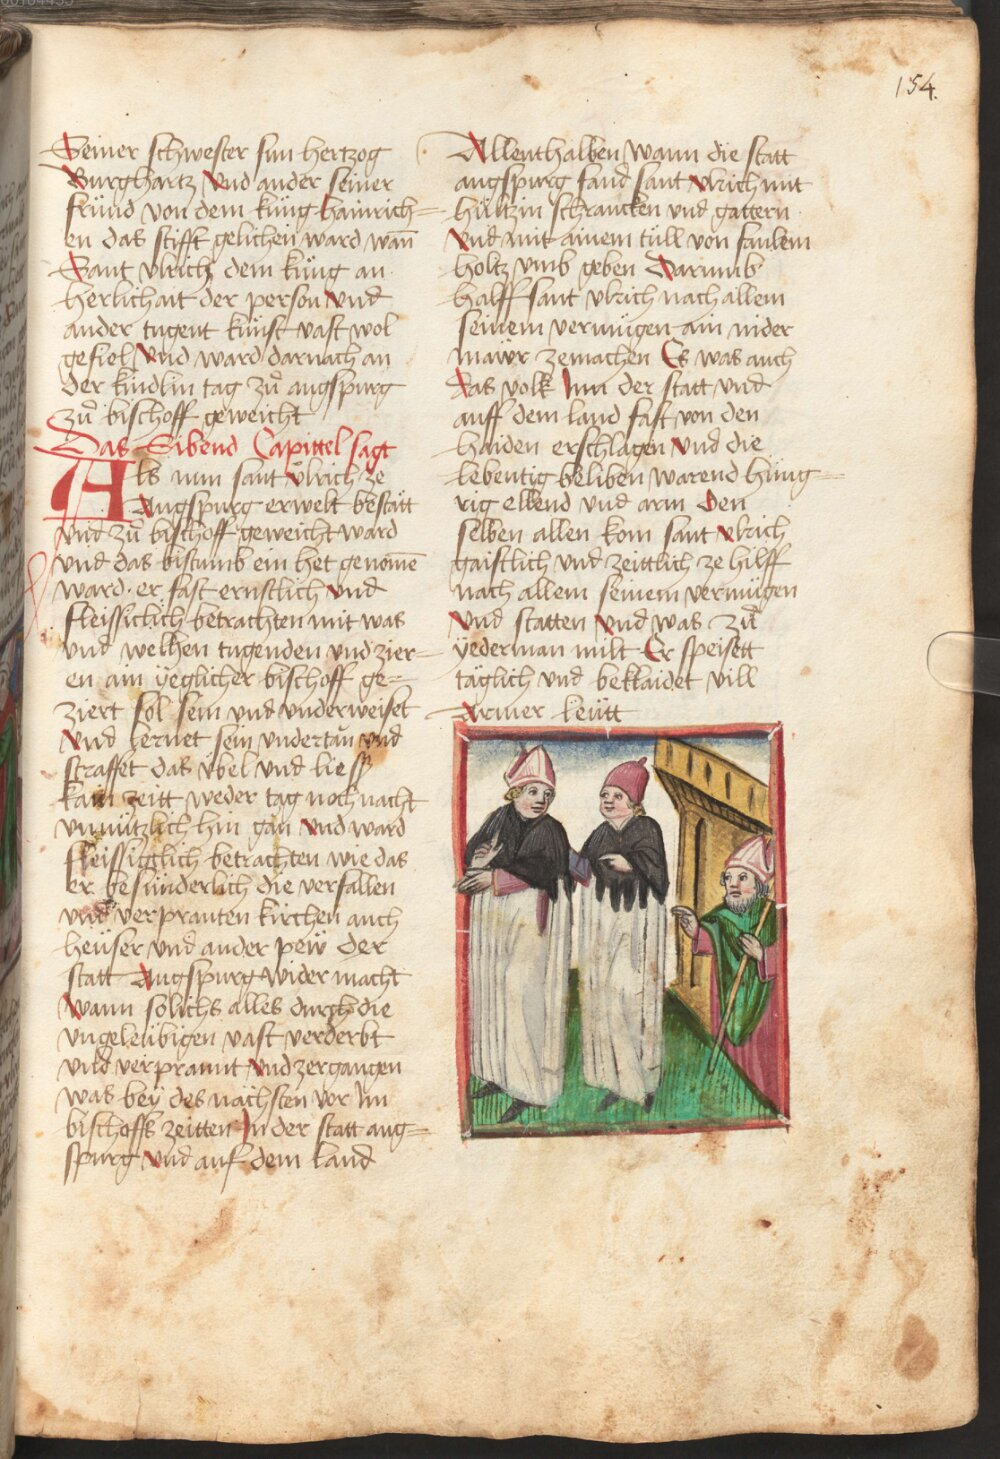 154.
Seiner schwester sun hertzog
Burghartz Vnd ander seiner
fründ von dem küng hainrich=
en das stifft gelichen ward wan̄
Sant vlrich dem küng an
herlichait der person Vnd
ander tugent künst vast wol
gefiel Vnd ward darnach an
der kindlin tag zů augspurg
zů bischoff geweicht
Das Sibend Capittel sagt
Als nun sant vͦlrich ze
Augspurg erwelt bestätt
vnd zů bischoff geweicht ward
vnd das bistumb ein het genom̄e
ward er fast ernstlich Vnd
fleissiclich betrachten mit was
vnd welhen tugenden vnd zier=
en ain yeglicher bischoff ge=
ziert sol sein vnd vnderweiset
Vnd lernet sein vndertan vnd
straffet das vbel vnd liess
kain zeitt weder tag noch nacht
vnnützlich hin gan Vnd ward
fleissigglich betrachten wie das
er besünderlich die verfallen
vnd verpranten kirchen auch
heüser vnd ander pew der
statt Augspurg wider macht
Wann sölichs alles durch die
vngeleubigen vast verderbt
vnd verprannt Vnd zergangen
was bey des nächsten vor Im
bischoffs zeitten In der statt aug=
spurg Vnd auf dem land
Allenthalben Wann die statt
augspurg fand sant Vlrich mit
hültzin schrancken vnd gattern
Vnd mit ainem tüll von faulem
holtz vmb geben Darumb
halff sant vlrich nach allem
seinem vermügen ain nider
maur zemachen Es was auch
das volk Inn der statt vnd
auff dem land fast von den
haiden erschlagen Vnd die
lebentig beliben warend hung=
rig ellend vnd arm Den
selben allen kom sant Vlrich
gaistlich vnd zeittlich ze hilff
nach allem seinem vermügen
Vnd statten Vnd was zů
yederman milt Er speisett
täglich vnd beklaidet vill
Armer leütt